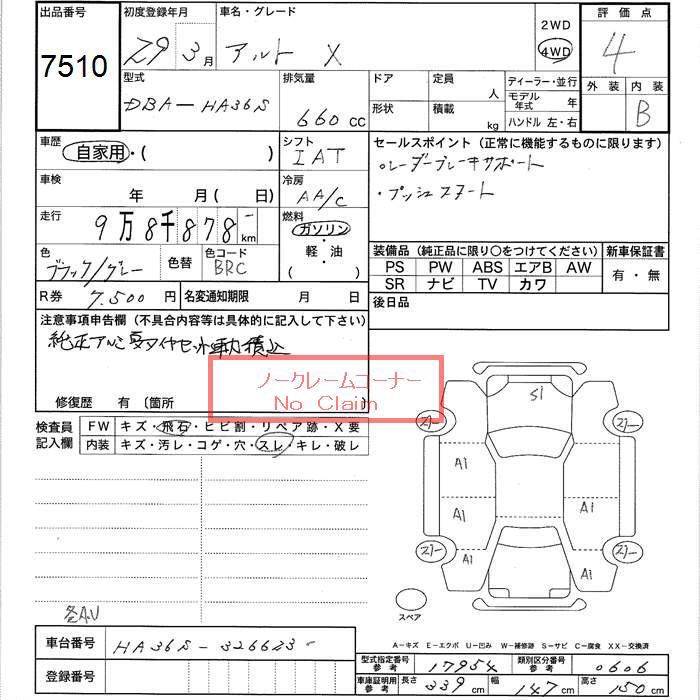 出品番号 初度登録年月 車名・グレード 2WD 評価点
7510 29 3月 アルト X 4WD 4
型式 排気量 ドア 定員 人 ディーラー・並行 外装 内装
DBA-HA36S 660cc 形状 積載 kg モデル年式 年 B
ハンドル 左・右
車歴 自家用・( ) シフト IAT セールスポイント (正常に機能するものに限ります)
・レーダーブレーキサポート
車検 年 月(日) 冷房 AA/C ・プッシュスタート
走行 9万8千878km 燃料 ガソリン・軽・油( )
色 ブラック/グレー 色替 色コード BRC
装備品 (純正品に限り○をつけてください) 新車保証書
PS PW ABS エアB AW 有・無
SR ナビ TV カワ
R券 7,500円 名変通知期限 月 日 後日品
注意事項申告欄 (不具合内容等は具体的に記入して下さい)
純正アルミ夏タイヤセット車内積込
ノークレームコーナー
No Claim
修復歴 有 〔箇所
検査員記入欄 FW キズ・飛石・ヒビ割・リペア跡・X要
内装 キズ・汚レ・コゲ・穴・スレ・キレ・破レ
S1
A1
A1 A1
A1 A1
スペア
各AU
車台番号 HA36S-326623
A-キズ E-エクボ U-凹み W-補修跡 S-サビ C-腐食 XX-交換済
登録番号 型式指定番号参考 17954 類別区分番号参考 0606
車庫証明用参考 長さ 339cm 幅 147cm 高さ 150cm